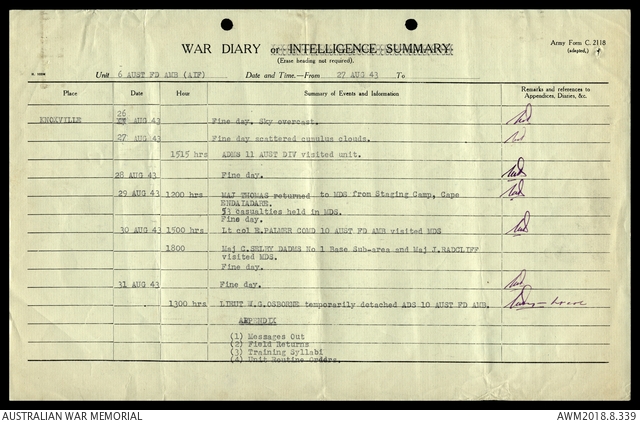 WAR DIARY or INTELLIGENCE SUMMARY
(Erase heading not required).
Army Form C. 2118
(adapted.)
Unit 6 AUST FD AMB (AIF) Date and Time.—From 27 AUG 43 To
Place Date Hour Summary of Events and Information Remarks and references to Appendices, Diaries, &c.
KNOXVILLE 26 AUG 43 Fine day. Sky overcast.
27 AUG 43 Fine day scattered cumulus clouds.
1515 hrs ADMS 11 AUST DIV visited unit.
28 AUG 43 Fine day.
29 AUG 43 1200 hrs MAJ THOMAS returned to MDS from Staging Camp, Cape
ENDAIADARE.
53 casualties held in MDS.
Fine day.
30 AUG 43 1500 hrs Lt col E.PALMER COMD 10 AUST FD AMB visited MDS
1800 Maj C.SELBY DADMS No 1 Base Sub-area and Maj J.RADCLIFF
visited MDS.
Fine day.
31 AUG 43 Fine day.
1300 hrs LIEUT W.G.OSBORNE temporarily detached ADS 10 AUST FD AMB.
APPENDIX
(1) Messages Out
(2) Field Returns
(3) Training Syllabi
(4) Unit Routine Orders.
AUSTRALIAN WAR MEMORIAL AWM2018.8.339